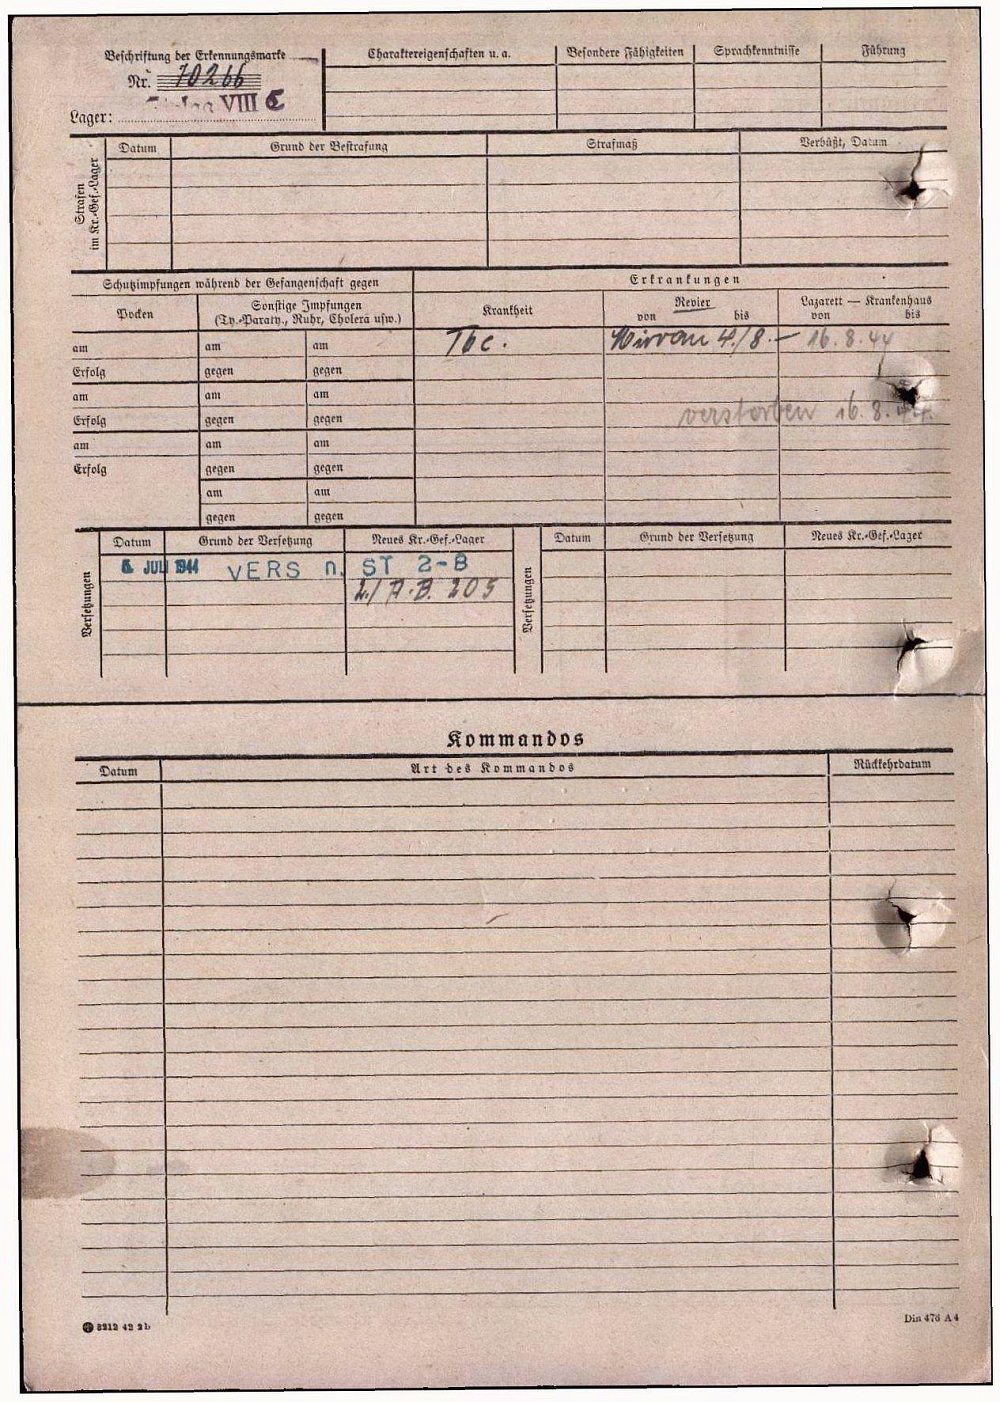 Beschriftung der Erkennungsmarke
Nr. 70266
VIII C
Lager:
Charaktereigenschaften u. a.
Besondere Fähigkeiten
Sprachkenntnisse
Führung
Strafen im Kr.-Gef.-Lager
Datum
Grund der Bestrafung
Strafmaß
Verbüßt, Datum
Schutzimpfungen während der Gefangenschaft gegen
Erkrankungen
Pocken
Sonstige Impfungen
(Ty.-Paraty., Ruhr, Cholera usw.)
Krankheit
Revier
von bis
Lazarett — Krankenhaus
von bis
am am am
Tbc. 4./8. — 16.8.44
Erfolg gegen gegen
am am am
Erfolg gegen gegen
verstorben 16.8.44.
am am am
Erfolg gegen gegen
am am
gegen gegen
Versetzungen
Datum Grund der Versetzung Neues Kr.-Gef.-Lager
JULI 1944 VERS n. ST 2-B
2./A.B. 205
Versetzungen
Datum Grund der Versetzung Neues Kr.-Gef.-Lager
Kommandos
Datum Art des Kommandos Rückkehrdatum
3212 42 2b
Din 476 A 4